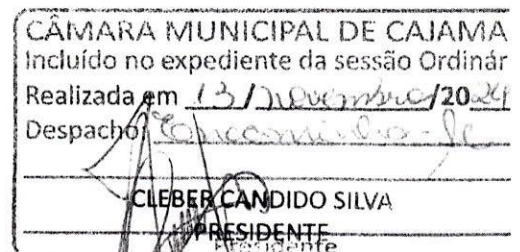 CÂMARA MUNICIPAL DE CAJAMA
Incluído no expediente da sessão Ordinár
Realizada em 13 / novembro /2024
Despacho: Encaminha-se
CLEBER CANDIDO SILVA
PRESIDENTE
Presidente